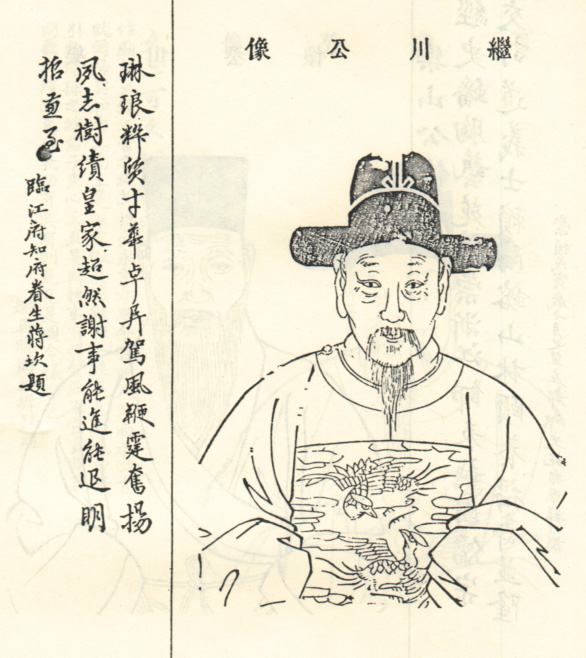 繼川公像
琳琅粹質才華卓异駕風鞭霆奮揚
夙志樹績皇家超然謝事能進能退明
至
臨江府知府眷生蔣題